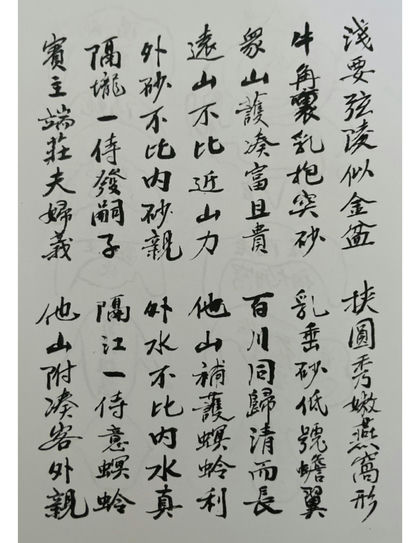 淺要弦陵似金盆 挾圓秀嫩燕窩形
牛角裏乳抱突砂 乳垂砂低號蟾翼
衆山護湊富且貴 百川同歸清而長
遠山不比近山力 他山補護螟蛉利
外砂不比內砂親 外水不比內水真
隔壠一侍發嗣子 隔江一侍意螟蛉
賓主端莊夫婦義 他山附湊客外親